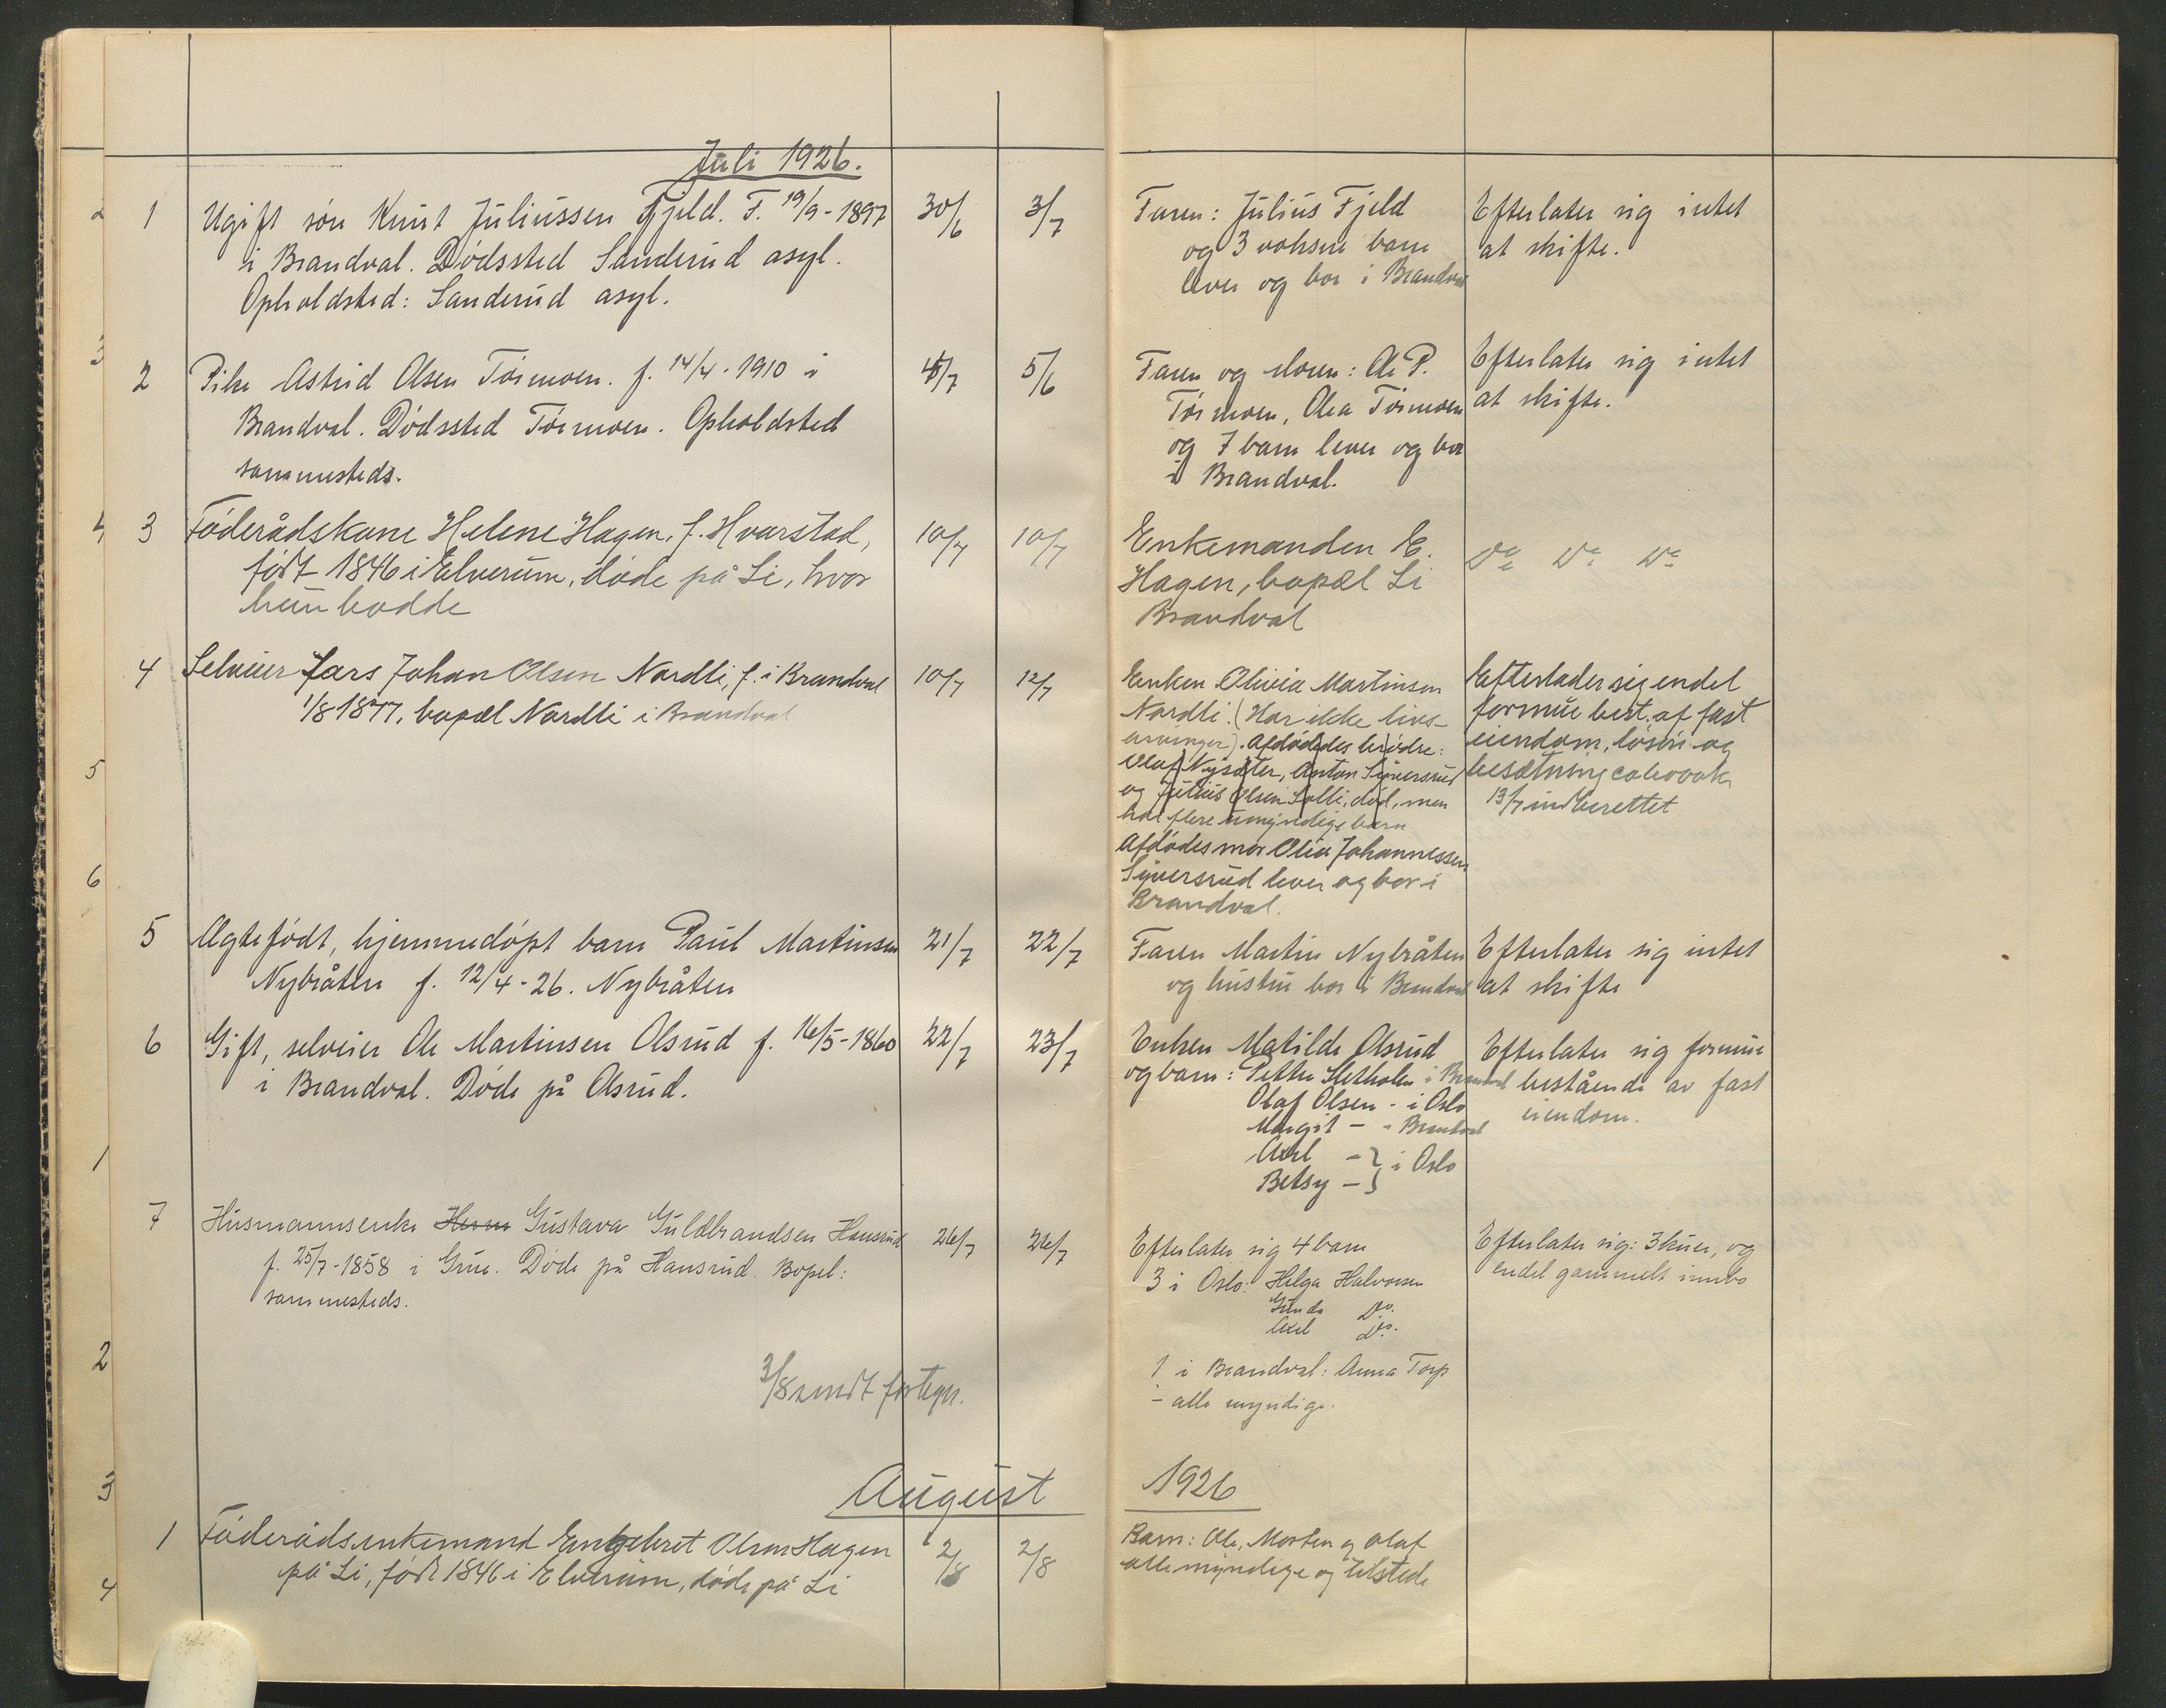 Juli 1926.
1 Ugift søn Knut Juliussen Fjeld. F. 19/9-1897 30/6 3/7
i Brandval. Dødssted Sanderud asyl.
Opholdsted: Sanderud asyl.
Faren: Julius Fjeld
og 3 voksne barn
lever og bor i Brandval
Efterlater sig intet
at skifte.
2 Pike Astrid Olsen Törmoen. f. 14/4-1910 i 4/7 5/6
Brandval. Dødssted Törmoen. Opholdsted
sammesteds.
Faren og Moren: Ole P.
Törmoen, Olea Törmoen
og 7 barn lever og bor
i Brandval.
Efterlater sig intet
at skifte.
3 Föderådskone Helene Hagen, f. Hvarstad, 10/7 10/7
født 1846 i Elverum, døde på Li, hvor
hun bodde
Enkemanden E.
Hagen, bopæl Li
Brandval
Do Do Do
4 Selveier Lars Johan Olsen Nordli, f. i Brandval 10/7 12/7
1/8 1877, bopæl Nordli i Brandval
Enken Olivia Martinsen
Nordli. (Har ikke livs-
arvinger). Afdødedes brødre:
Olaf Nysæter, Anton Syversrud
og Julius Olsen Solli, død, men
har flere umyndige barn
Afdødes mor Olia Johannessen
Syversrud lever og bor i
Brandval.
Efterlader sig endel
formue best. af fast
eiendom, løsøre og
besætning
13/7 indberettet
5 Ægtefødt, hjemmedøpt barn Paul Martinsen 21/7 22/7
Nybråten f. 12/4-26. Nybråten
Faren Martin Nybråten
og hustru bor i Brandval
Efterlater sig intet
at skifte
6 Gift, selveier Ole Martinsen Olsrud f. 16/5-1860 22/7 23/7
i Brandval. Døde på Olsrud.
Enken Matilde Olsrud
og barn: Petter Sletholen i Brandval
Olaf Olsen - i Oslo
Margit - - Brandval
Axel - } i Oslo
Betsy - }
Efterlater sig formue
bestående av fast
eiendom.
7 Husmannsenke Gustava Guldbrandsen Hansrud 26/7 26/7
f. 25/7-1858 i Grue. Døde på Hansrud. Bopel:
sammesteds.
Efterlater sig 4 barn
3 i Oslo: Helga Halvorsen
Gunda Do.
Axel Do.
1 i Brandval: Anna Torp
- alle myndige.
Efterlater sig: 3 kuer, og
endel gammelt innbo
3/8 sendt fortegn.
August 1926
1 Föderådsenkemand Engebret Olsen Hagen 2/8 2/8
på Li, født 1846 i Elverum, døde på Li
Barn: Ole, Morten og Olaf
alle myndige og tilstede
2
3
4
5
6
1
2
3
4